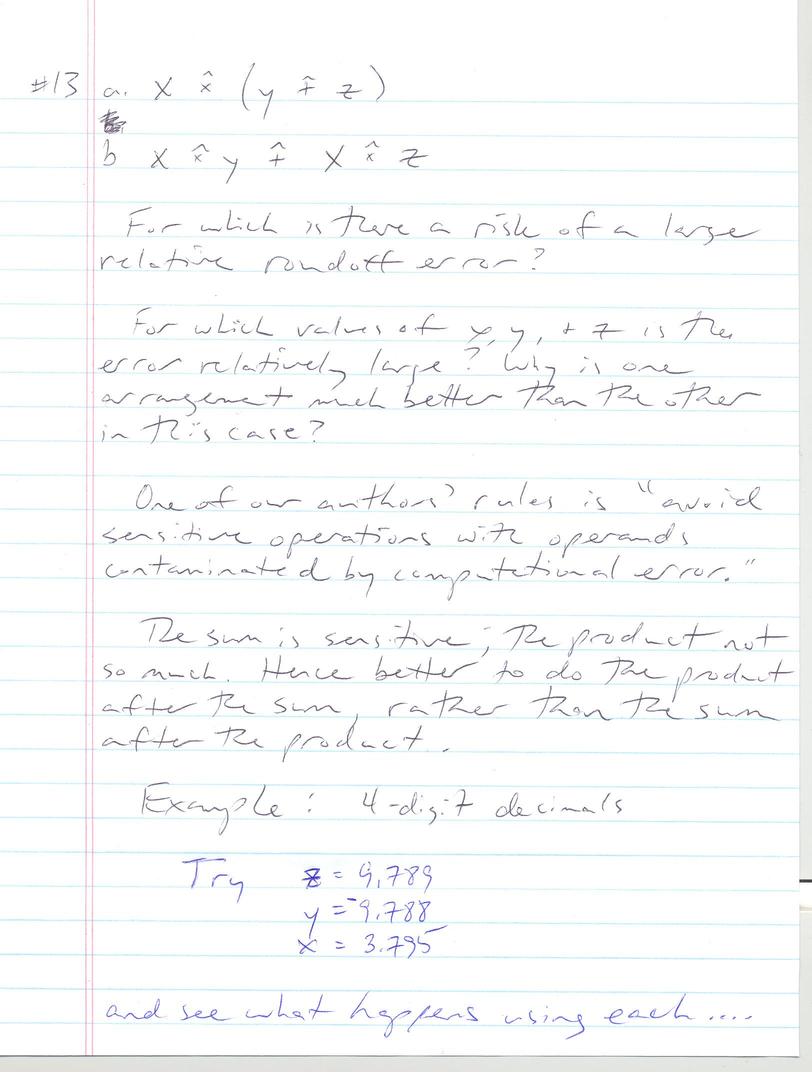 #13 a. x x̂ (y +̂ z)
b x x̂ y +̂ x x̂ z
For which is there a risk of a large
relative roundoff error?
For which values of x, y, + z is the
error relatively large? Why is one
arrangement much better than the other
in this case?
One of our authors' rules is "avoid
sensitive operations with operands
contaminated by computational error."
The sum is sensitive; the product not
so much. Hence better to do the product
after the sum, rather than the sum
after the product.
Example: 4-digit decimals
Try z = 9.789
y = -9.788
x = 3.795
and see what happens using each....